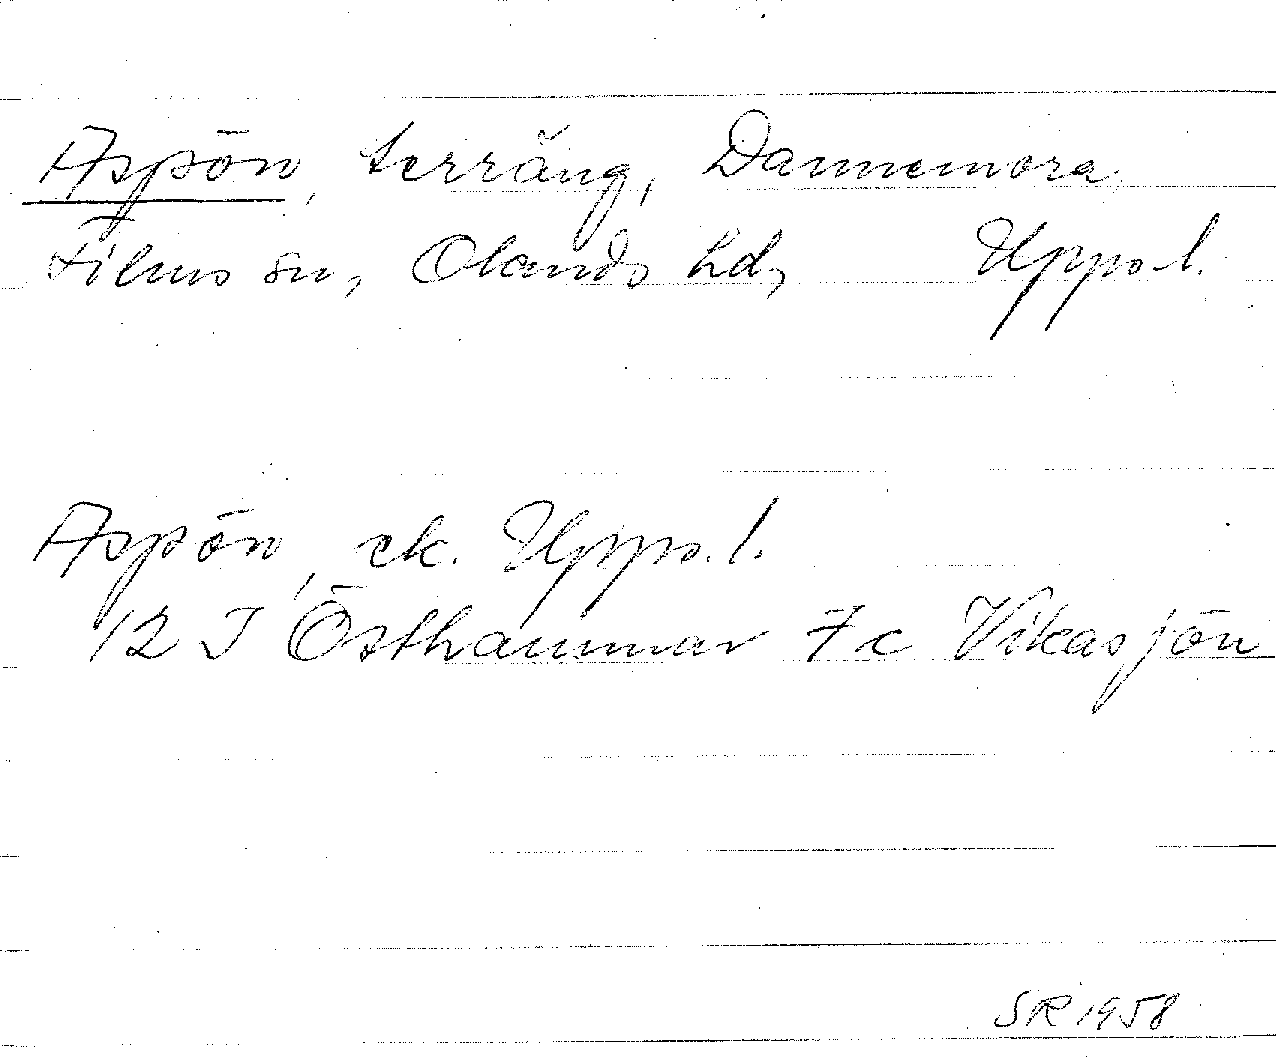 Aspön, terräng, Dannemora,
Films sn, Olands hd, Upps.l.
Aspön, ek. Upps.l.
12 I Östhammar 7c Vikasjön
SR 1958